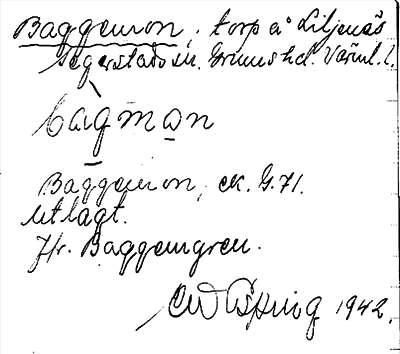 Baggemon, torp å Liljenäs
Segerstads sn. Grums hd. Värml. l.
bàgmɷn
Baggemon, ek. G. 71.
utlagt.
Jfr. Baggemgren.
1942.